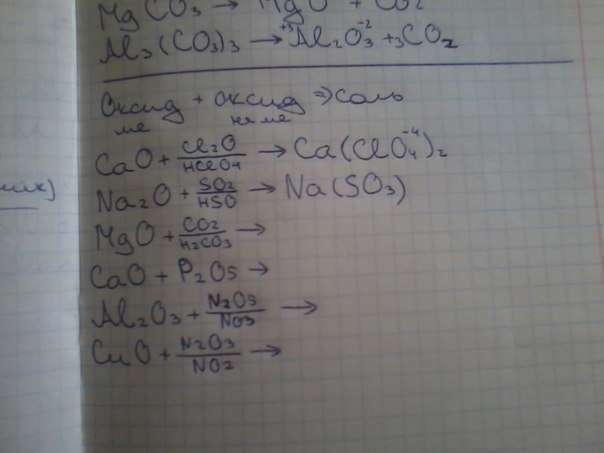 MgCO₃ → MgO + CO₂
Al₂(CO₃)₃ → ⁺³Al₂O₃⁻² + 3CO₂
Оксид + оксид ⇒ соль
ме не ме
CaO + Cl₂O/HClO₄ → Ca(ClO₄⁻⁴)₂
Na₂O + SO₂/HSO → Na(SO₃)
MgO + CO₂/H₂CO₃ →
CaO + P₂O₅ →
Al₂O₃ + N₂O₅/NO₃ →
CuO + N₂O₃/NO₂ →